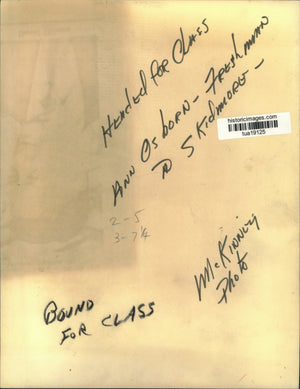 HEADED FOR CLASS
ANN OSBORN - FRESHMAN
SKIDMORE -
historicimages.com
tua19125
2-5
3-7¼
McKINNEY
PHOTO
BOUND
FOR CLASS